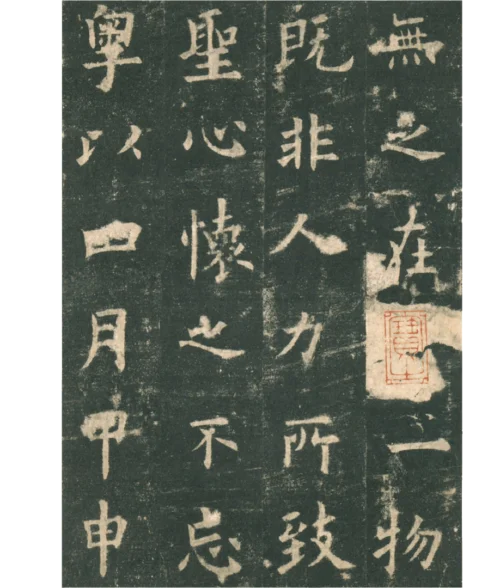 無之在一物
既非人力所致
聖心懷之不忘
粵以四月甲申